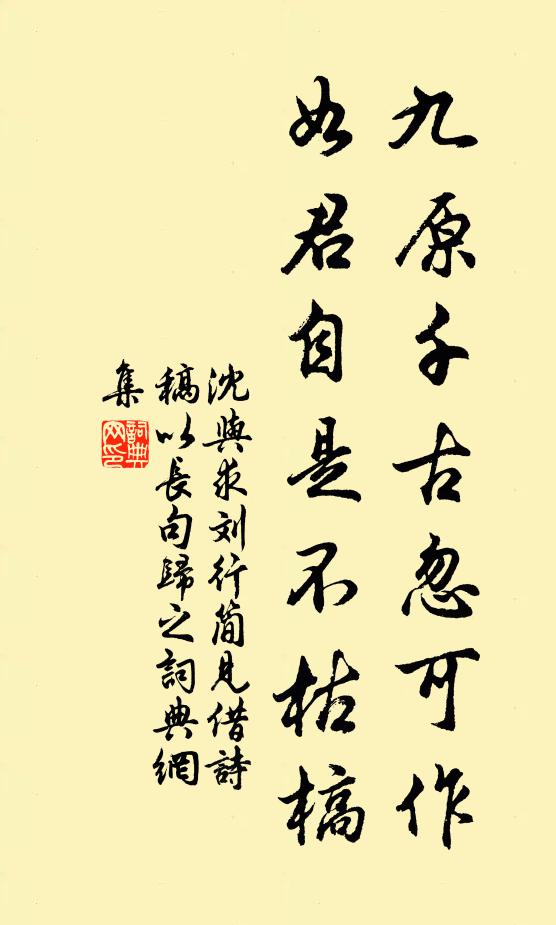 九原千古忽可作
如君自是不枯槁
沈與求刘行簡見借詩
稿以長句歸之詞典網
集
詞典網印